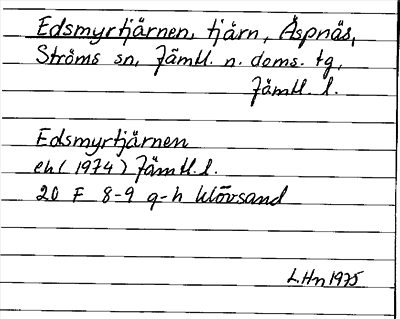 Edsmyrtjärnen, tjärn, Äspnäs,
Ströms sn, Jämtl. n. doms. tg,
Jämtl. l.
Edsmyrtjärnen
ek (1974) Jämtl. l.
20 F 8-9 g-h Klövsand
L.Hn 1975